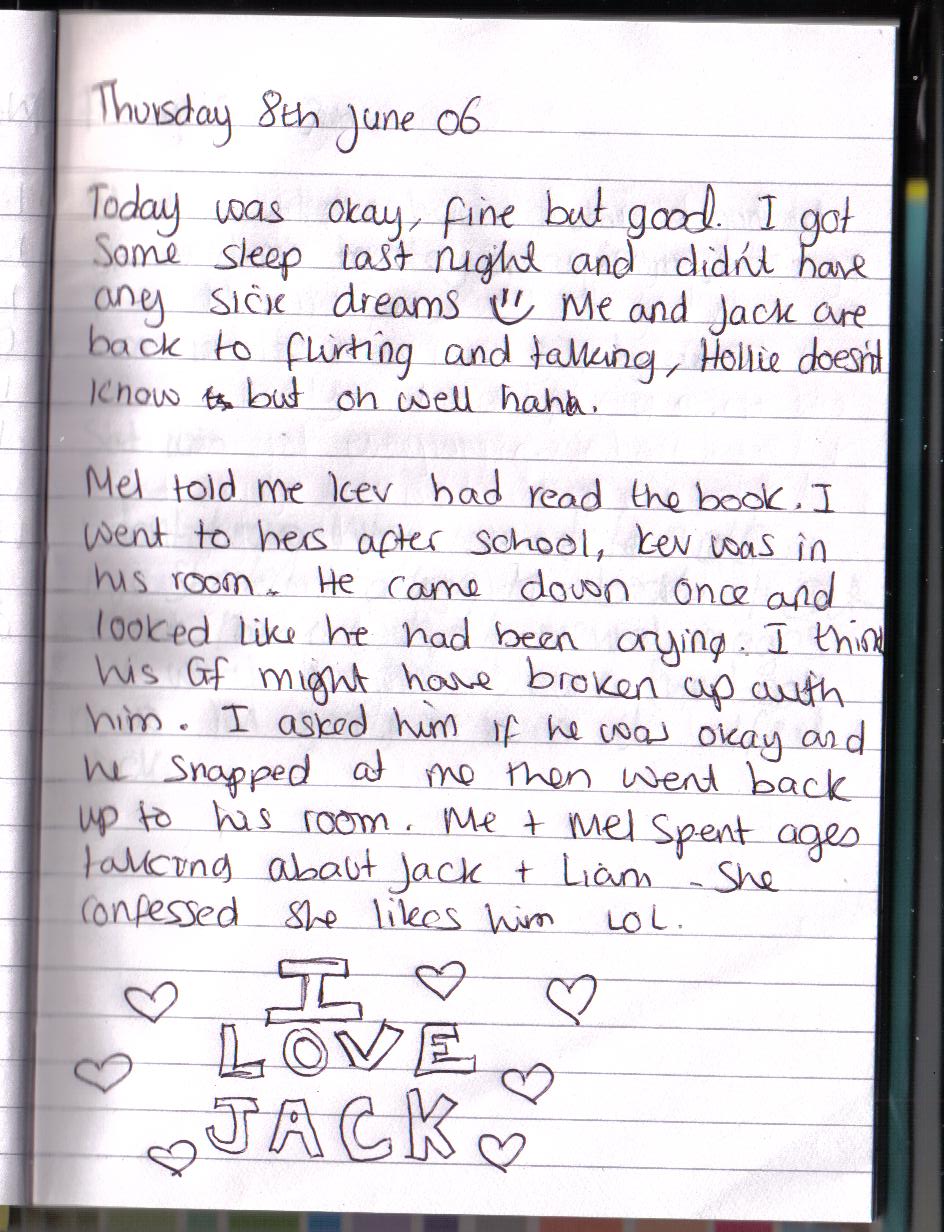 Thursday 8th June 06
Today was okay, fine but good. I got
some sleep last night and didn't have
any sick dreams Me and Jack are
back to flirting and talking, Hollie doesn't
know but oh well haha.
Mel told me Kev had read the book. I
went to hers after school, Kev was in
his room. He came down once and
looked like he had been crying. I think
his Gf might have broken up with
him. I asked him if he was okay and
he snapped at me then went back
up to his room. Me + Mel spent ages
talking about Jack + Liam - She
confessed she likes him LOL.
I
LOVE
JACK